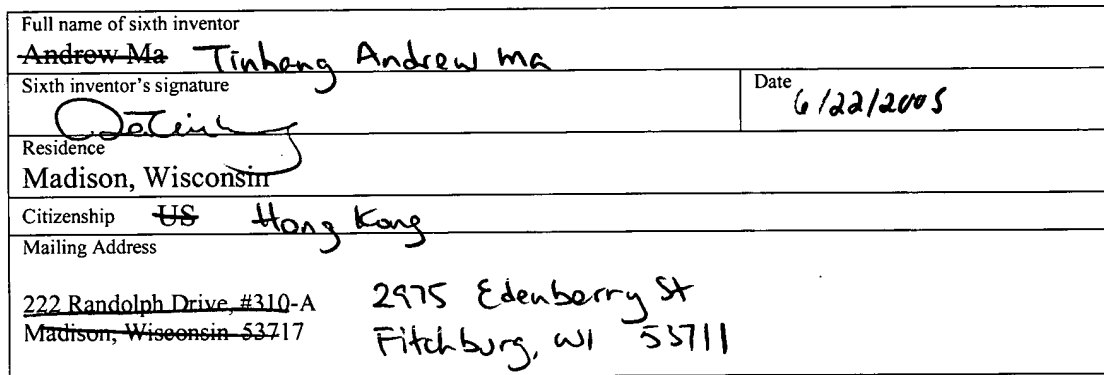 Full name of sixth inventor
Andrew Ma Tinhang Andrew Ma
Sixth inventor's signature
Date 6/22/2005
Residence
Madison, Wisconsin
Citizenship US Hong Kong
Mailing Address
222 Randolph Drive, #310-A 2975 Edenberry St
Madison, Wisconsin 53717 Fitchburg, WI 53711